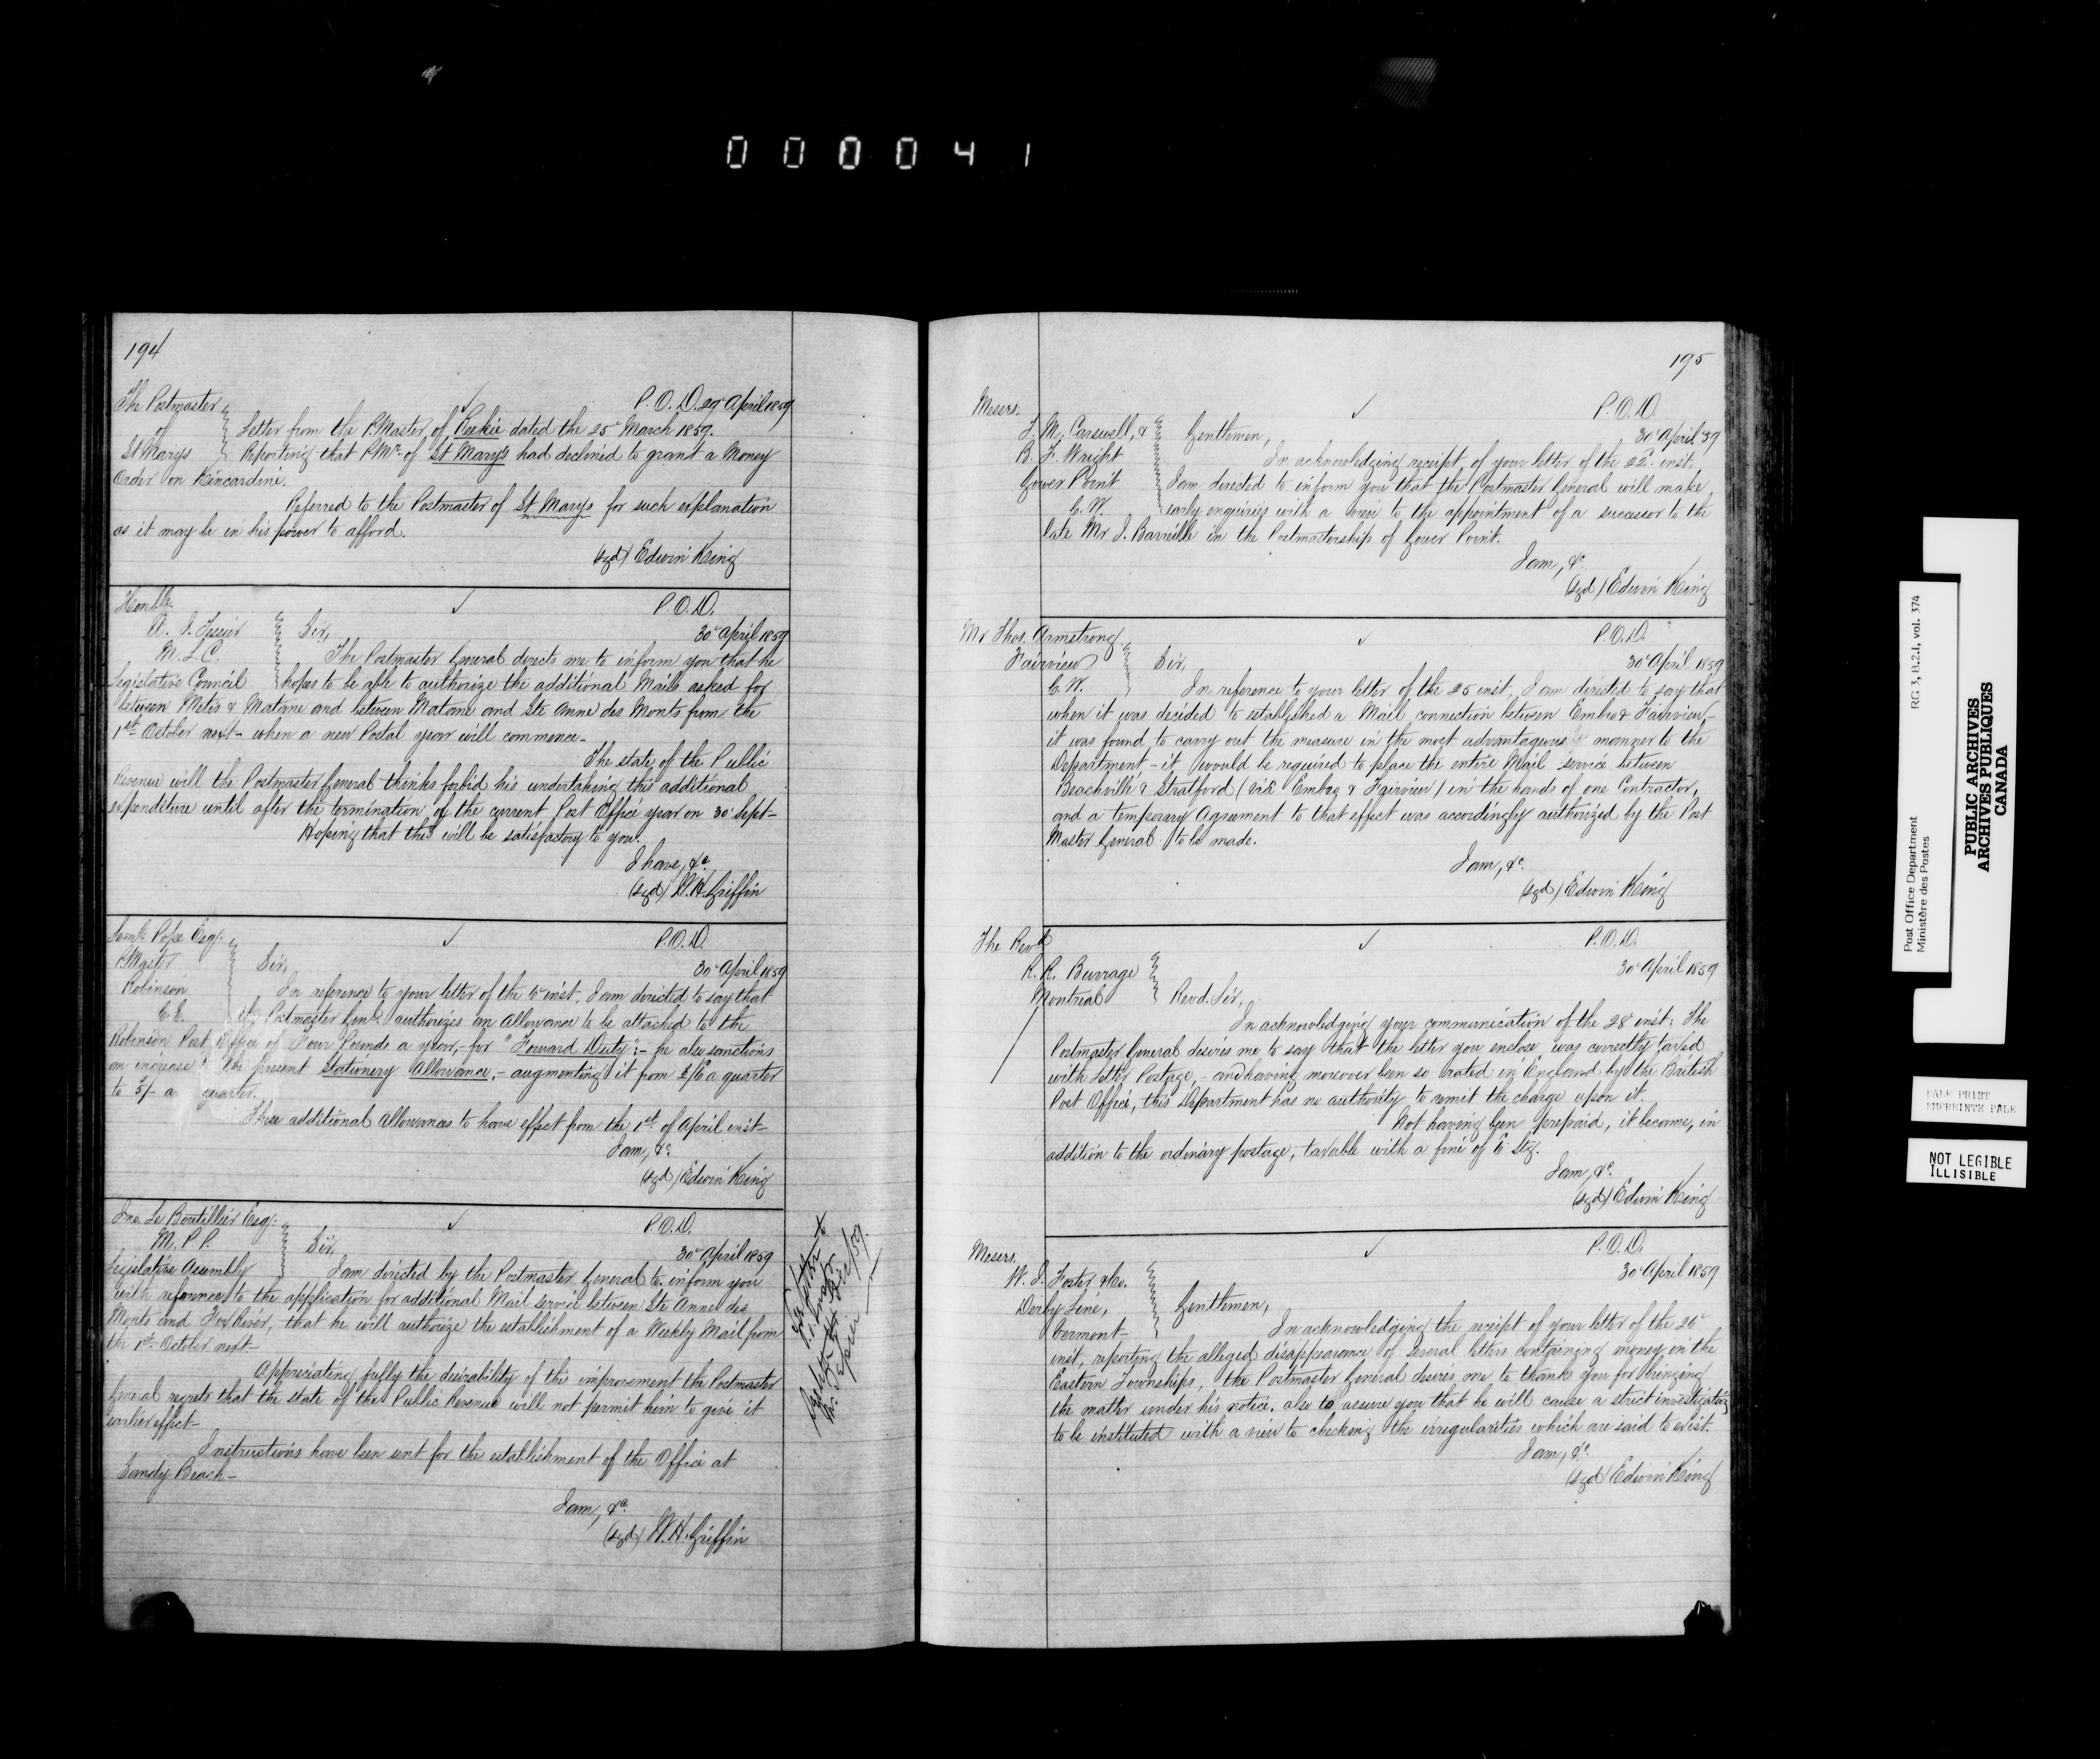 000041
194
The Postmaster
of
St Marys
P.O.D. 29 April 1859
Letter from the P.Master of Reekie dated the 25 March 1859.
Reporting that P.Mr. of St Marys had declined to grant a Money
Order on Kincardine.
Referred to the Postmaster of St Marys for such explanation
as it may be in his power to afford.
(sgd) Edwin King
Honble.
M.L.C.
Legislative Council
P.O.D.
30 April 1859
Sir,
The Postmaster General directs me to inform you that he
hopes to be able to authorize the additional Mails asked for
between Metis & Matane and between Matane and Ste Anne des Monts from the
1st October next - when a new Postal year will commence -
The state of the Public
Revenue will the Postmaster General thinks forbid his undertaking this additional
expenditure until after the termination of the current Post Office year on 30 Sept -
Hoping that this will be satisfactory to you.
I have, &c.
(sgd) W.H. Griffin
Leml. Pope Esq.
P.Master
Robinson
C.E.
P.O.D.
30 April 1859
Sir,
In reference to your letter of the 6 inst. I am directed to say that
the Postmaster Genl. authorizes an allowance to be attached to the
Robinson Post Office of Four Pounds a year, - for "Forward Duty"; - he also sanctions
an increase the present Stationery Allowance, - augmenting it from 2/6 a quarter
to 5/- a quarter.
These additional allowances to have effect from the 1st of April inst -
I am, &c.
(sgd) Edwin King
Jno. Le Boutillier Esq.
M.P.P.
Legislative Assembly
P.O.D.
30 April 1859
Sir,
I am directed by the Postmaster General to inform you
with reference to the application for additional Mail service between Ste Anne des
Monts and Fox River, that he will authorize the establishment of a Weekly Mail from
the 1st October next -
Appreciating fully the desirability of this improvement the Postmaster
General regrets that the state of the Public Revenue will not permit him to give it
earlier effect -
Instructions have been sent for the establishment of the Office at
Sandy Beach -
I am, &c.
(sgd) W.H. Griffin
195
Messrs.
J. M. Carswell, &
R. F. Wright
Gower Point
C.W.
P.O.D.
30 April 59
Gentlemen,
In acknowledging receipt of your letter of the 22 inst.
I am directed to inform you that the Postmaster General will make
early enquiries with a view to the appointment of a successor to the
late Mr J. in the Postmastership of Gower Point.
I am, &c.
(sgd) Edwin King
Mr Thos. Armstrong
Fairview
C.W.
P.O.D.
30 April 1859
Sir,
In reference to your letter of the 25 inst, I am directed to say that
when it was decided to established a Mail connection between Embro & Fairview, -
it was found to carry out the measure in the most advantageous manner to the
Department - it would be required to place the entire Mail service between
Beachville & Stratford (via Embro & Fairview) in the hands of one Contractor,
and a temporary Agreement to that effect was accordingly authorized by the Post
Master General to be made.
I am, &c.
(sgd) Edwin King
The Revd.
R. R. Burrage
Montreal
P.O.D.
30 April 1859
Revd. Sir,
In acknowledging your communication of the 28 inst: The
Postmaster General desires me to say that the letter you enclose was correctly taxed
with Letter Postage, - and having moreover been so rated in England by the British
Post Office, this Department has no authority to remit the charge upon it.
Not having been prepaid, it became, in
addition to the ordinary postage, taxable with a fine of 6 Stg.
I am, &c.
(sgd) Edwin King
Messrs.
W. J. Foster & Co.
Derby Line,
Vermont -
P.O.D.
30 April 1859
Gentlemen,
In acknowledging the receipt of your letter of the 26
inst, reporting the alleged disappearance of several letters containing money in the
Eastern Townships, the Postmaster General desires me to thank you for bringing
the matter under his notice, also to assure you that he will cause a strict investigation
to be instituted with a view to checking the irregularities which are said to exist.
I am, &c.
(sgd) Edwin King
Post Office Department
Ministère des Postes
RG 3, B.2.I, vol. 374
PUBLIC ARCHIVES
ARCHIVES PUBLIQUES
CANADA
PALE PRINT
EMPREINTE PALE
NOT LEGIBLE
ILLISIBLE